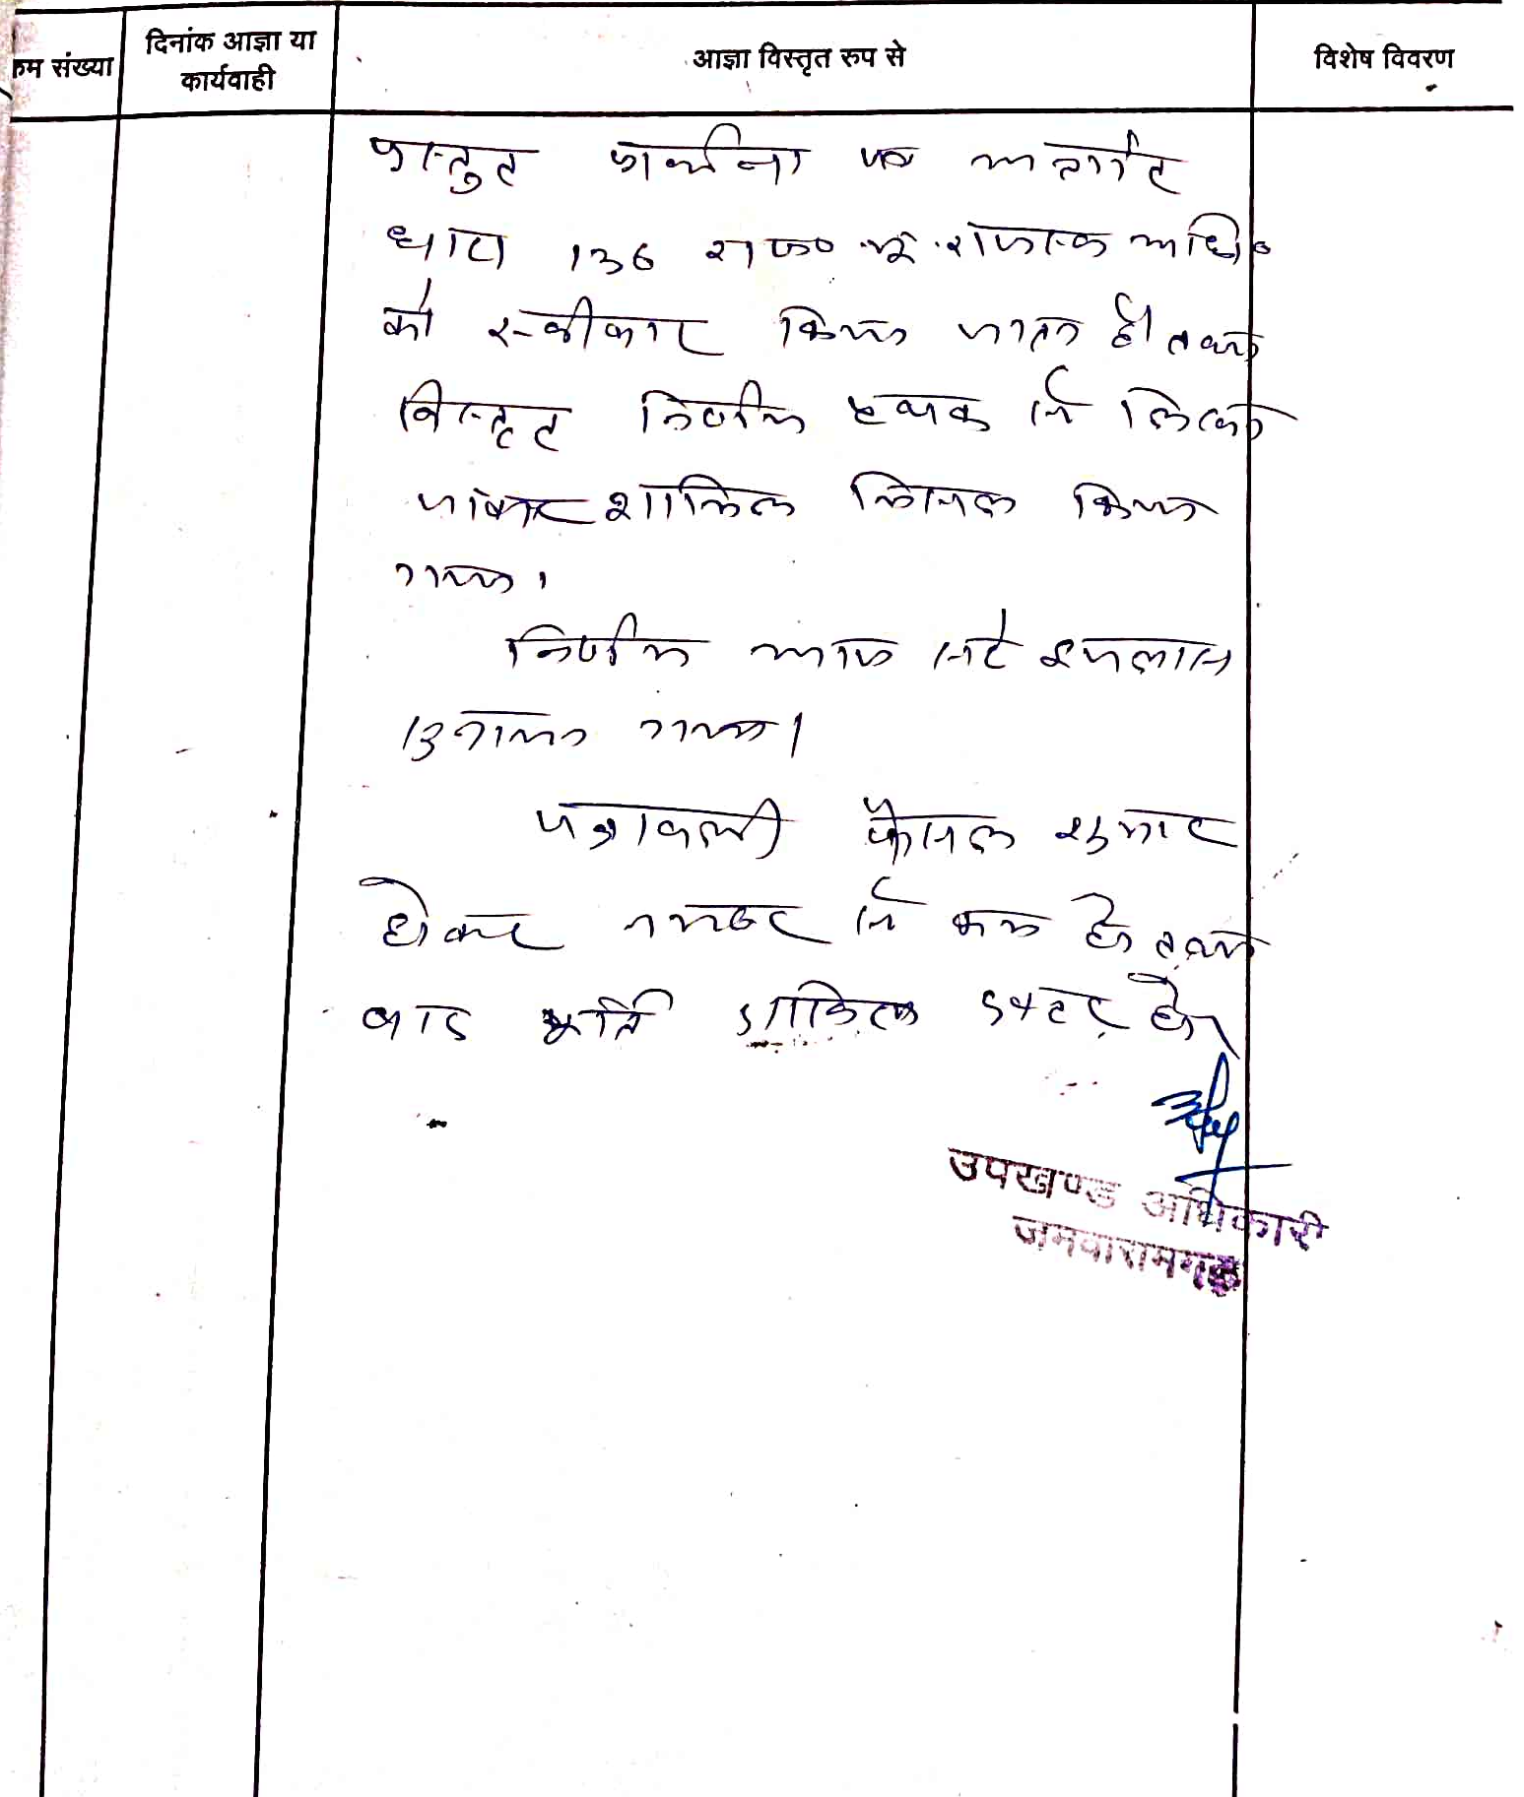 क्रम संख्या
दिनांक आज्ञा या
कार्यवाही
आज्ञा विस्तृत रुप से
विशेष विवरण
प्रस्तुत प्रार्थना पत्र अन्तर्गत
धारा 136 राज० भू-राजस्व अधि०
को स्वीकार किया जाता है। तथा
विस्तृत निर्णय पृथक से लिखा
जाकर शामिल मिसल किया
गया।
निर्णय आज सरे इजलास
सुनाया गया।
पत्रावली फैसल शुमार
होकर नम्बर से कम हो तथा
बाद पूर्ति दाखिल दफ्तर हो।
उपखण्ड अधिकारी
जमवारामगढ़